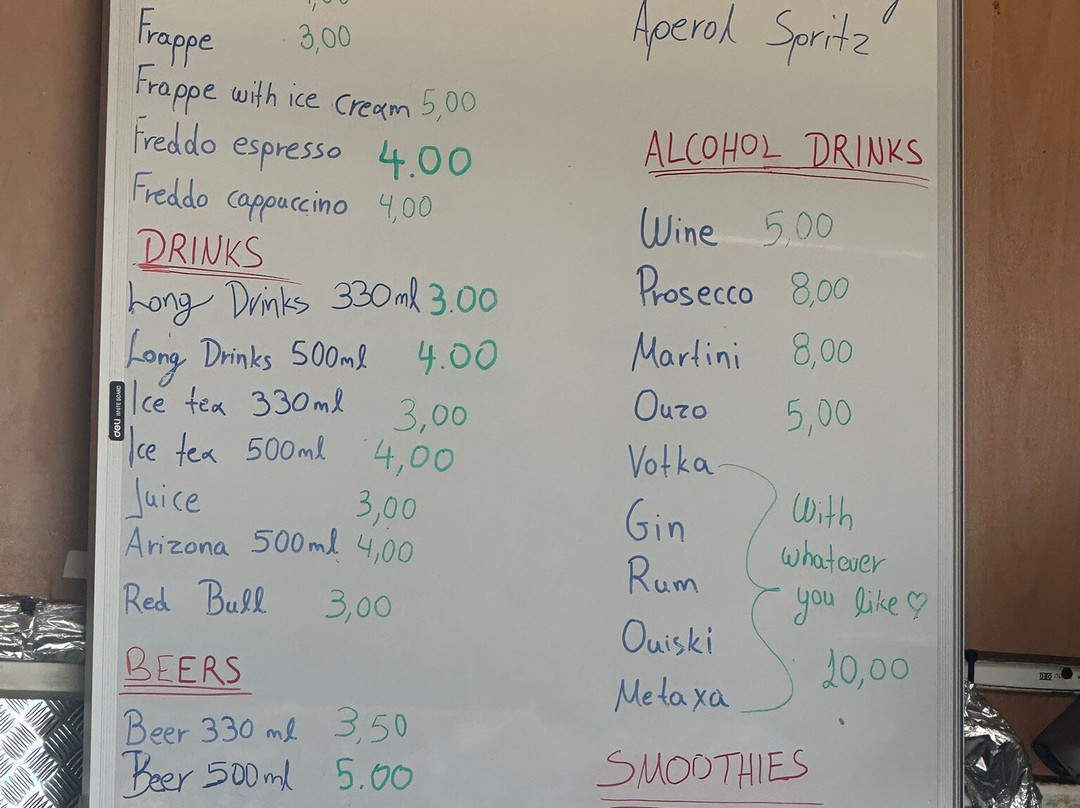 Frappe 3,00
Frappe with ice cream 5,00
Freddo espresso 4.00
Freddo cappuccino 4,00
DRINKS
Long Drinks 330ml 3.00
Long Drinks 500ml 4.00
Ice tea 330ml 3,00
Ice tea 500ml 4,00
Juice 3,00
Arizona 500ml 4,00
Red Bull 3,00
BEERS
Beer 330 ml 3,50
Beer 500ml 5.00
Aperol Spritz
ALCOHOL DRINKS
Wine 5,00
Prosecco 8,00
Martini 8,00
Ouzo 5,00
Votka
Gin
Rum
Ouiski
Metaxa
With
whatever
you like ♡
10,00
SMOOTHIES
deli WHITE BOARD